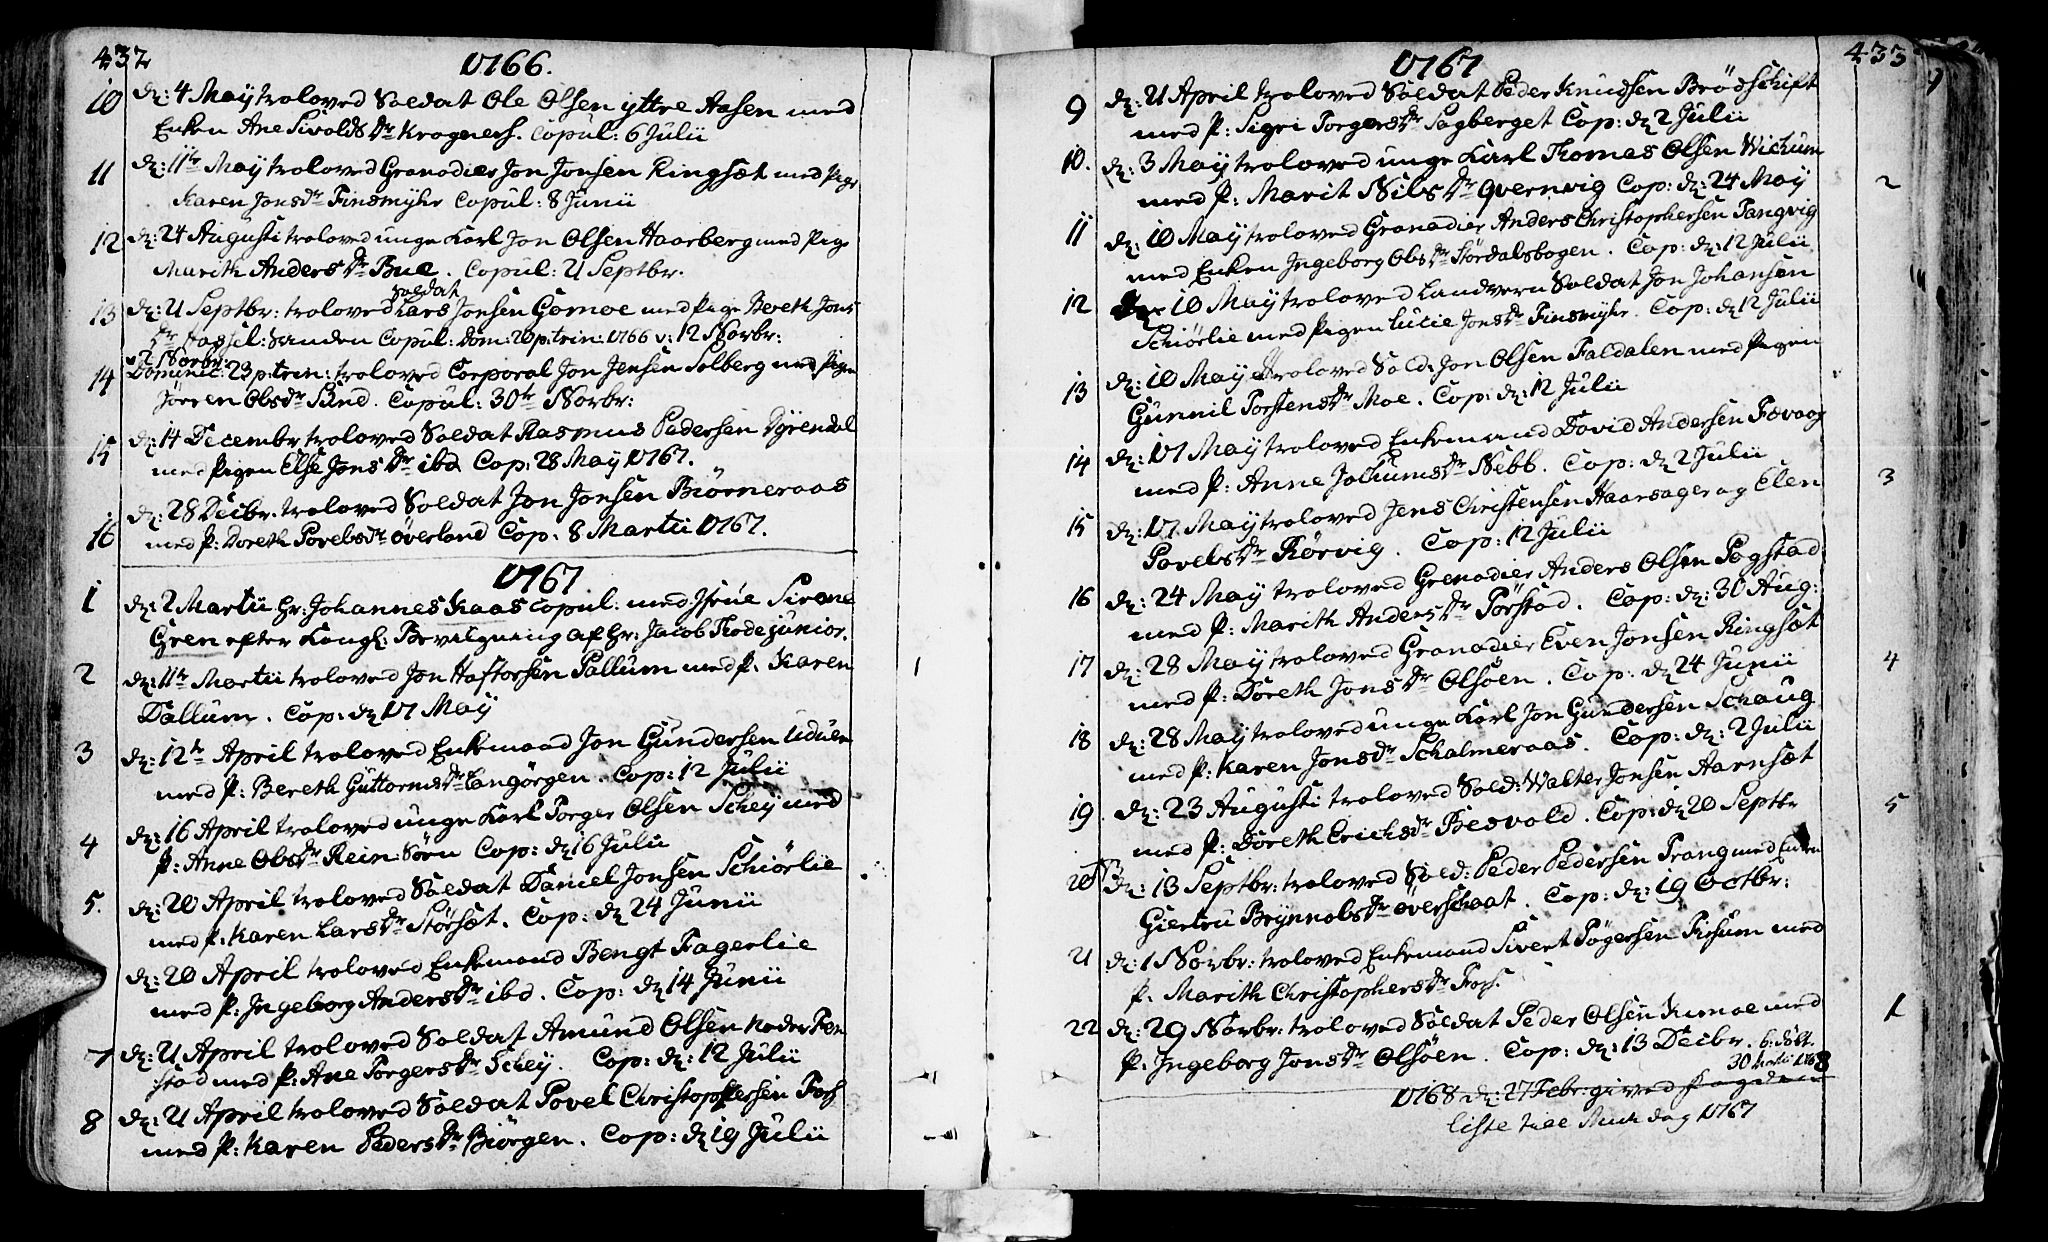 432
1766.
10 dz: 4 Maÿ troloved Soldat Ole Olsen ÿttre Aasen med
Enken Ane Sivolds Dr Krogners. Copul: 6 Julii
11 dz: 11te Maÿ troloved Granadier Jon Jonsen Ringsæt med Pige
Karen Jonsdr Finsmÿhr Copul: 8 Junii
12 dz: 24 Augusti troloved unge Karl Jon Olsen Haarberg med Pige
Marith Anders Dr Bue. Copul: 21 Septbr.
soldat
13 dz: 21 Septbr: troloved Lars Jonsen Gomoe med Pige Bereth Jons
Dr Hassel: Sanden Copul: Dom: 20 p: trin: 1766 v: 12 Novbr:
2 Novbr:
14 Dominic: 23 p: trin: troloved Corporal Jon Jensen Solberg med Pigen
Jörren Olsdr Sund. Copul: 30te Novbr:
15 dz: 14 Decembr troloved Soldat Rasmus Pedersen Dÿrendal
med Pigen Else Jons Dr ibd Cop: 28 Maÿ 1767.
16 dz: 28 Decbr. troloved Soldat Jon Jonsen Biörneraas
med P: Doreth Povelsdr överland Cop: 8 Martii 1767.
1767
1 dz: 2 Martii Hr: Johannes Kaas copul: med Jfrue Sirene
Gren efter Kongl: Bevilgning af Hr: Jacob Rode junior.
2 dz: 11te Martii troloved Jon Haftorsen Tallum med P. Karen
Dallum. Cop: dz 17 Maÿ
1
3 dz: 12te April troloved Enkemand Jon Gundersen Uduen
med P: Bereth Guttorms Dr Langörgen. Cop: 12 Julii
4 dz: 16 April troloved unge Karl Torger Olsen Scheÿ med
P: Anne Ols Dr Rein Sörn Cop: dz 16 Julii
5. dz: 20 April troloved Soldat Daniel Jonsen Schiörlie
med P: Karen Lars Dr Störsæt. Cop: dz 24 Junii
dz: 20 April troloved Enkemand Bengt Fagerlie
med P: Ingeborg Anders Dr ibd. Cop: dz 14 Junii
7 dz: 21 April troloved Soldat Amund Olsen Neder Fen
stad med P: Ane Torgers Dr Scheÿ. Cop: dz: 12 Julii
8 dz: 21 April troloved Soldat Povel Christophersen Fors
med P: Karen Peders Dr Biörgen. Cop: dz 19 Julii
433
1767
9 dz: 21 April troloved Soldat Peder Knudsen Brödschift
med P: Sigri Torgers Dr Sagberget Cop: dz 2 Julii
10. dz: 3 Maÿ troloved unge Karl Thomas Olsen Wichum
med P: Marit Nils Dr Qvernvig Cop: dz: 24 Maÿ
2
11 dz: 10 Maÿ troloved Granadier Anders Christophersen Tangvig
med Enken Ingeborg Ols Dr Stördalsbogen. Cop: dz: 12 Julii
12 dz: 10 Maÿ troloved Landvern Soldat Jon Johansen
Schiörlie med Pigen Lucie Jons Dr Finsmÿhr. Cop: dz 12 Julii
13 dz: 10 Maÿ troloved Sold. Jon Olsen Faldalen med Pigen
Gunnil Torstens Dr Moe. Cop: dz: 12 Julii
14 dz: 17 Maÿ troloved Enkemand David Andersen Tevaag
med P: Anne Jochums Dr Nebb. Cop: dz 2 Julii
3
15 dz: 17 Maÿ troloved Jens Christensen Haarsager og Elen
Povels Dr Rörvig. Cop: 12 Julii
16 dz: 24 Maÿ troloved Grenadier Anders Olsen Pogstad
med P: Marith Anders Dr Pörstad. Cop: dz: 30 Aug:
17 dz: 28 Maÿ troloved Granadier Even Jonsen Ringsæt
med P: Doreth Jons Dr Olsöen. Cop: dz 24 Junii
4
18 dz: 28 Maÿ troloved unge Karl Jon Gundersen Schaug
med P: Karen Jons Dr Schalmeraas. Cop: dz: 2 Julii
19 dz: 23 Augusti troloved Sold: Walter Jonsen Aarnsæt
med P: Doreth Erichs Dr Besvold. Cop: dz 20 Septbr
5
20 dz: 13 Septbr: troloved Sold: Peder Pedersen Prang med Enken
Giertru Brÿnnols Dr överschaat. Cop: dz: 19 Octbr:
21 dz: 1 Novbr: troloved Enkemand Sivert Pögersen Fissum med
P: Marith Christophers Dr Fors.
22 dz: 29 Novbr: troloved Soldat Peder Olsen Kumoe med
P: Ingeborg Jons Dr Olsöen. Cop: dz: 13 Decbr.
1
1768 dz: 27 Febr: gived Fogden
liste till 1767